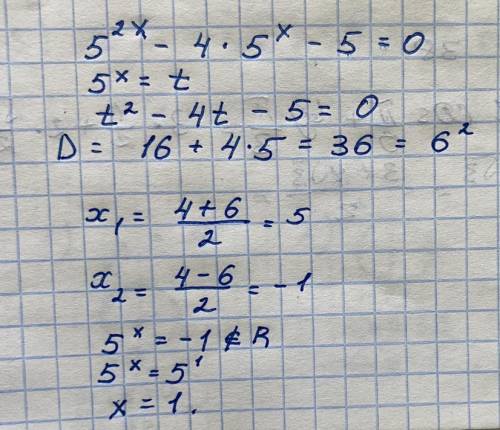 5^{2x} - 4 · 5^x - 5 = 0
5^x = t
t² - 4t - 5 = 0
D = 16 + 4·5 = 36 = 6²
x₁ = \frac{4+6}{2} = 5
x₂ = \frac{4-6}{2} = -1
5^x = -1 ∉ R
5^x = 5^1
x = 1.